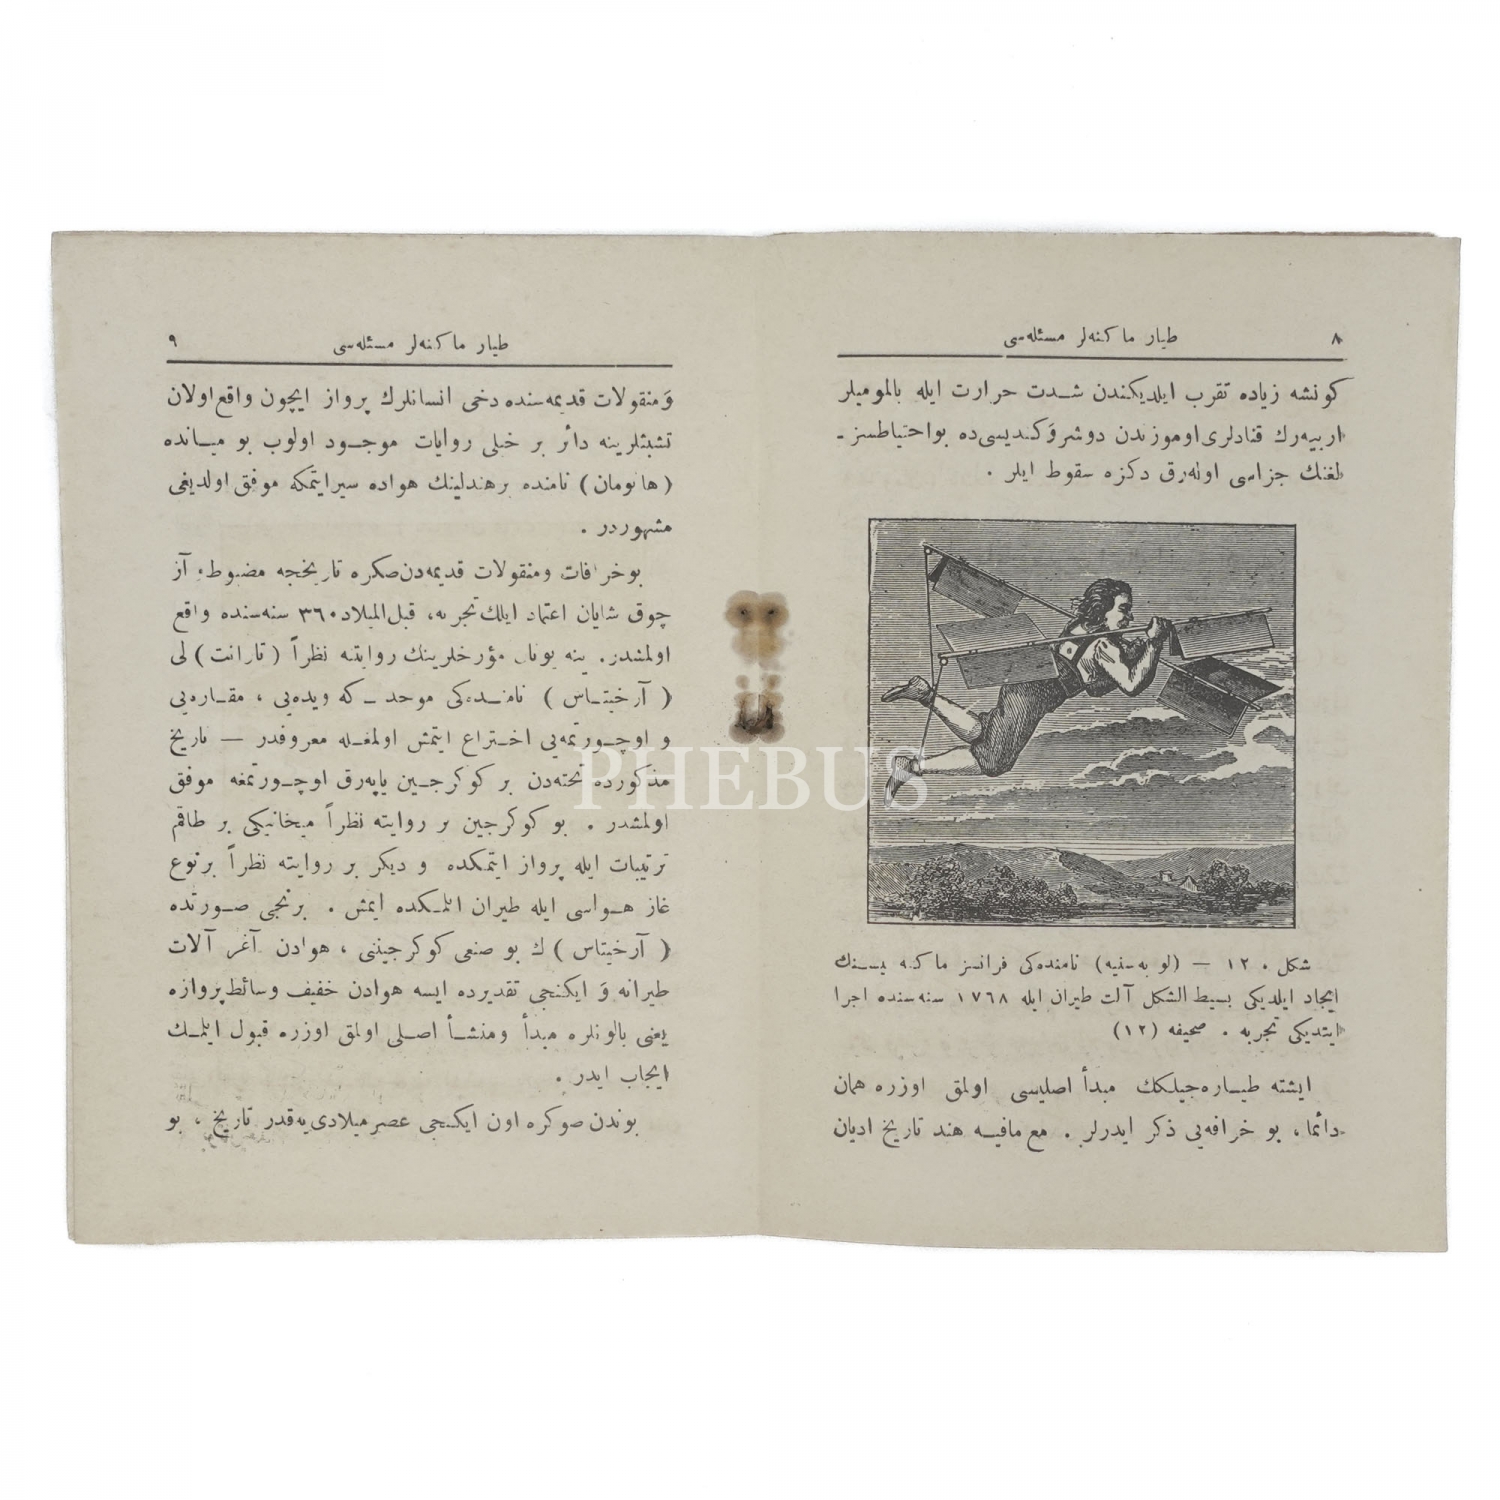 ٨
طيار ماكنه‌لر مسئله‌سى
كونشه زياده تقرب ايلديكندن شدت حرارت ايله بالموميلر
اربيه‌رك قنادلرى اوموزندن دوشر وَكنديسى‌ده بواحتياطسز ـ
لغنك جزاسى اوله‌رق دكزه سقوط ايلر .
شكل . ١٢ — (لو به‌سنيه) نامنده‌كى فرانسز ماكنه يســنك
ايجاد ايلديكى بسيط الشكل آلت طيران ايله ١٧٦٨ سنه‌سنده اجرا
ايتديكى تجربه . صحيفه (١٢)
ايشته طيــاره‌جيلكك مبدأ اصليسى اولمق اوزره همان
دائما، بو خرافه‌يى ذكر ايدرلر . مع مافيــه هند تاريخ اديان
طيار ماكنه‌لر مسئله‌سى
٩
وَمنقولات قديمه‌سنده دخى انسانلرك پرواز ايچون واقع اولان
تشبثلرينه دائر بر خيلى روايات موجــود اولوب بو ميــانده
(هانومان) نامنده برهندلينك هواده سيرايتمكه موفق اولديغى
مشهوردر .
بوخرافات ومنقولات قديمه‌دن‌صكره تاريخجه مضبوط، آز
چوق شايان اعتماد ايلك تجربه، قبل‌الميلاد ٣٦٠ سنه‌سنده واقع
اولمشدر. ينه يونان مؤرخلرينك روايتنه نظراً (تارانت) لى
(آرخيتــاس) نامنــده‌كى موحد ــ كه ويده‌يى ، مقــاره‌يى
و اوچــورتمه‌يى اختراع ايتمش اولمغــله معروفدر — تاريخ
مذكورده تخته‌دن بر كوكرجــين ياپه‌رق اوچــورتمغه موفق
اولمشدر . بو كوكرجين بر روايته نظراً ميخانيكى بر طاقم
ترتيبات ايله پرواز ايتمكده و ديكر بر روايته نظراً برنوع
غاز هــواسى ايله طيران ائلــكده ايمش . برنجى صــورتده
(آرخيتاس) ك بو صنعى كوكرجيننى ، هوادن آغر آلات
طيرانه وَ ايكنجى تقديرده ايسه هوادن خفيف وسائط پروازه
يعنى بالونلره مبدأ ومنشــأ اصــلى اولمق اوزره قبول ائلــك
ايجاب ايدر .
بوندن صوكره اون ايكنجى عصر ميلادى‌يه‌قدر تاريخ ، بو
PHEBUS